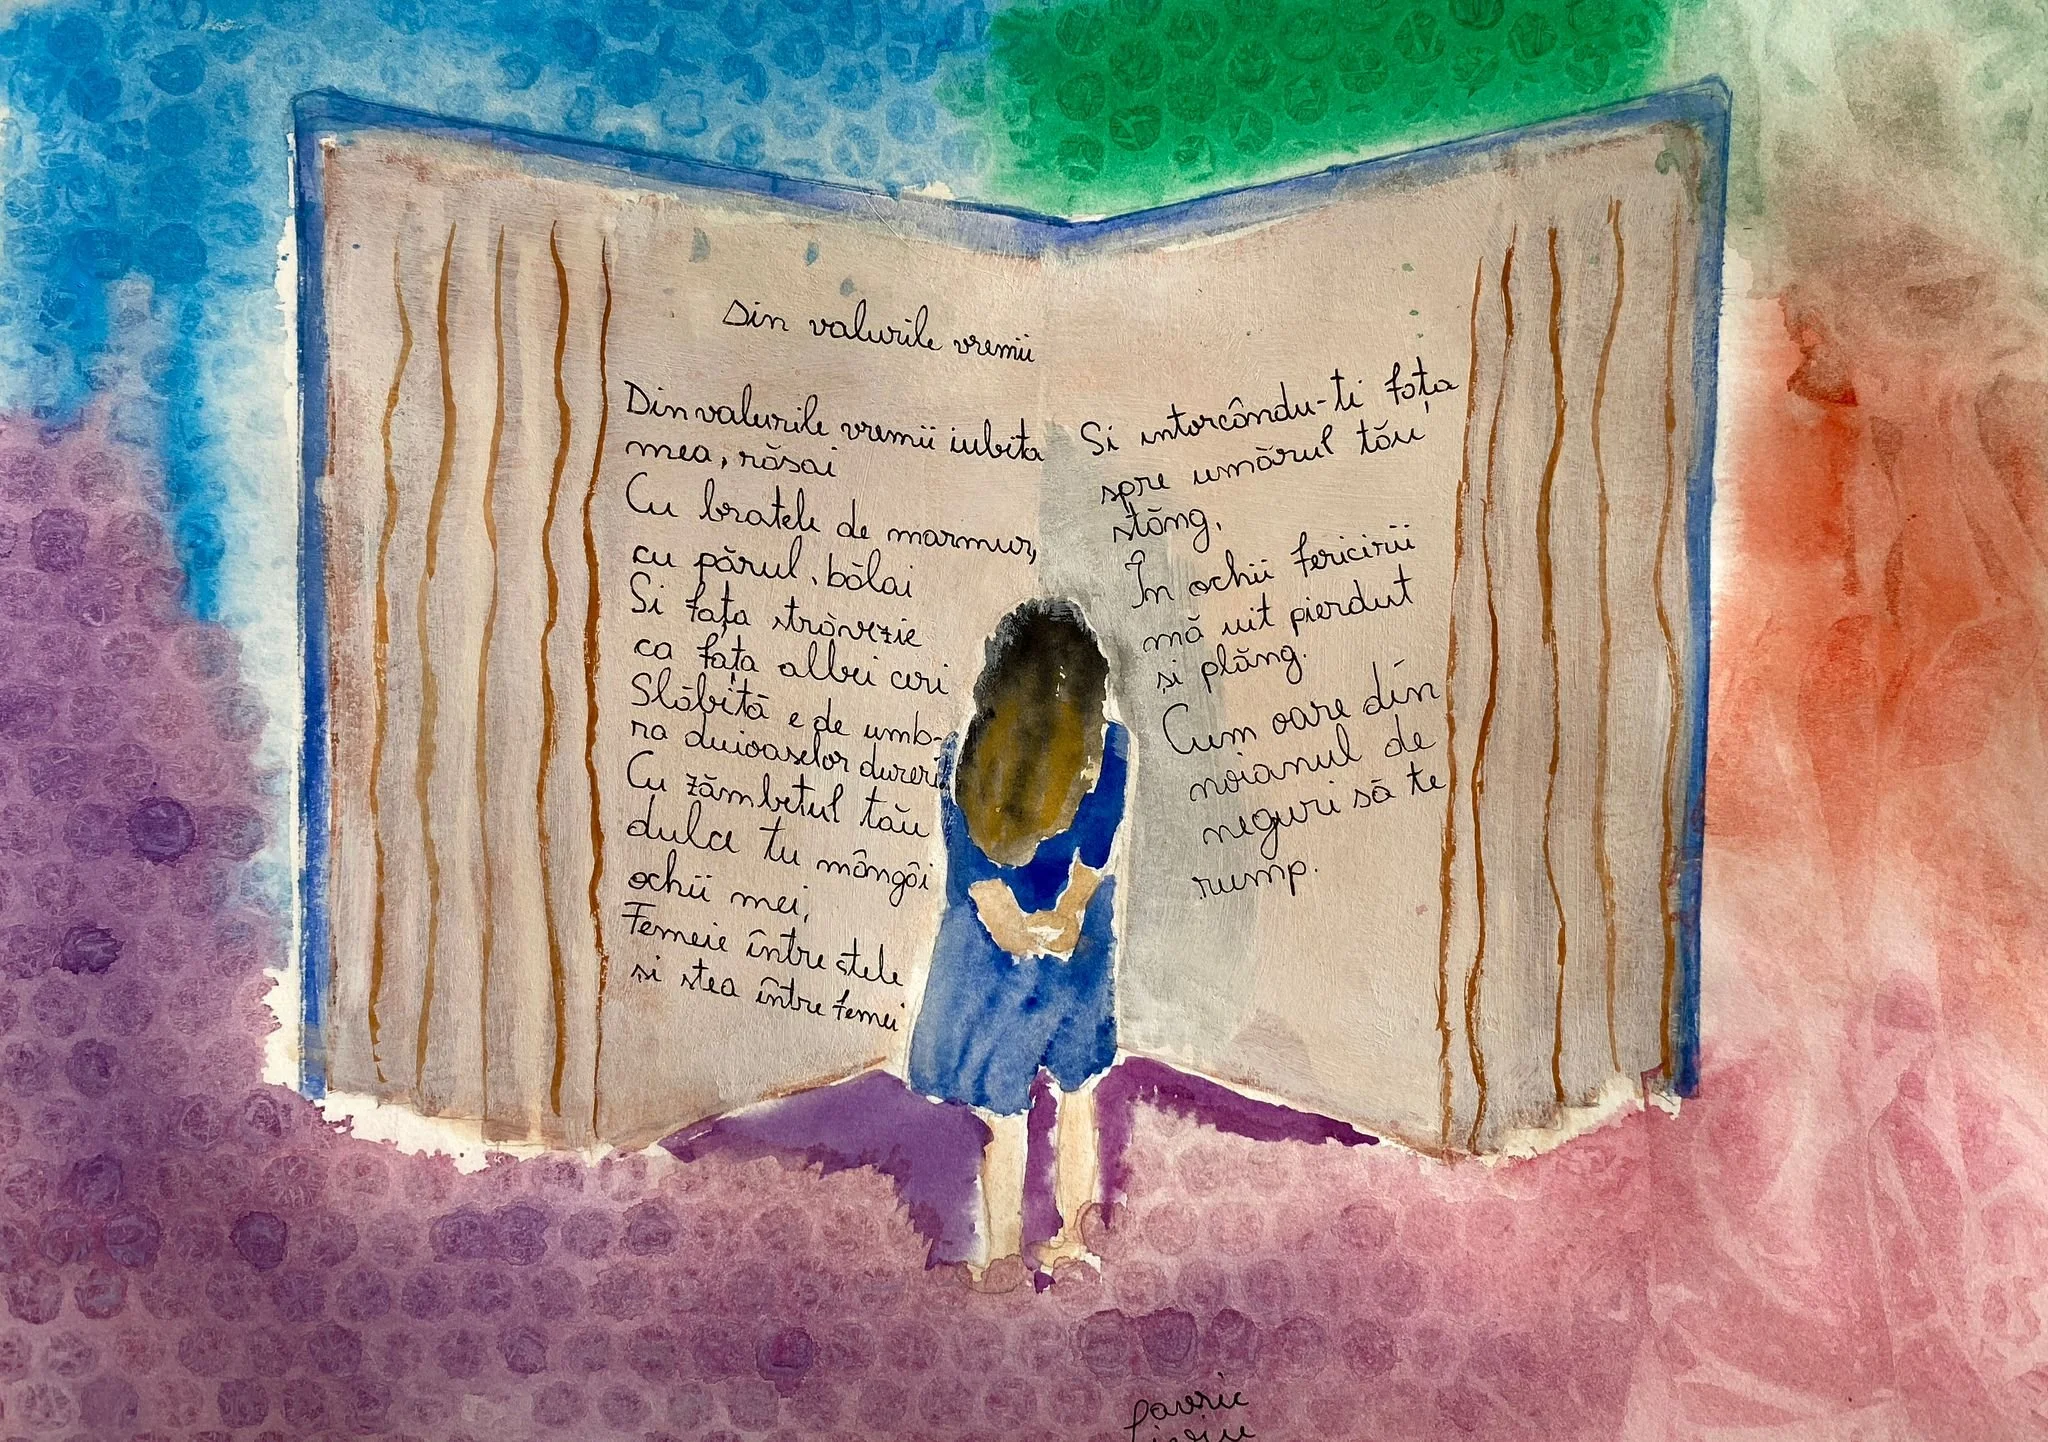 Din valurile vremii
Din valurile vremii iubita
mea, răsai
Cu bratele de marmur,
cu părul, bălai
Si fața străvezie
ca fața albei ceri
Slăbită e de umb-
ra duioaselor dureri
Cu zămbetul tău
dulce tu mângâi
ochii mei,
Femeie între stele
si stea între femei
Si intorcându-ti fața
spre umărul tău
stăng,
În ochii fericirii
mă uit pierdut
si plăng.
Cum oare din
noianul de
neguri să te
rump.
Lavric